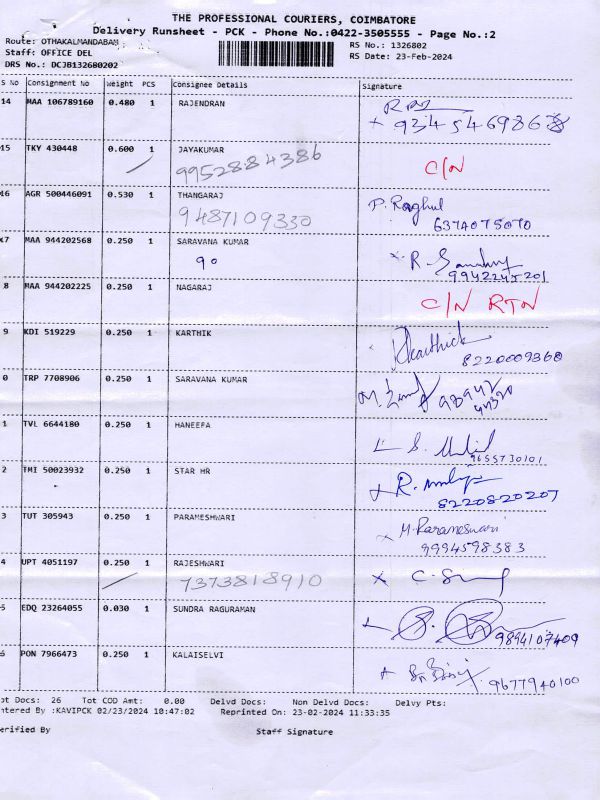 THE PROFESSIONAL COURIERS, COIMBATORE
Delivery Runsheet - PCK - Phone No.:0422-3505555 - Page No.:2
Route: OTHAKALMANDABAM RS No.: 1326802
Staff: OFFICE DEL RS Date: 23-Feb-2024
DRS No.: DCJB132680202
S No Consignment No Weight PCS Consignee Details Signature
14 MAA 106789160 0.480 1 RAJENDRAN
15 TKY 430448 0.600 1 JAYAKUMAR C/N
9952884386
16 AGR 500446091 0.530 1 THANGARAJ P. Raghul
9487109330 6374075070
17 MAA 944202568 0.250 1 SARAVANA KUMAR
90 9942245201
8 MAA 944202225 0.250 1 NAGARAJ C/N RTN
9 KDI 519229 0.250 1 KARTHIK Karthick
8220009368
0 TRP 7708906 0.250 1 SARAVANA KUMAR
1 TVL 6644180 0.250 1 HANEEFA
9655730101
2 TMI 50023932 0.250 1 STAR HR
8220820207
3 TUT 305943 0.250 1 PARAMESHWARI M. Parameswari
9994598383
4 UPT 4051197 0.250 1 RAJESHWARI
7373818910
5 EDQ 23264055 0.030 1 SUNDRA RAGURAMAN
9894107409
6 PON 7966473 0.250 1 KALAISELVI
9677940100
ot Docs: 26 Tot COD Amt: 0.00 Delvd Docs: Non Delvd Docs: Delvy Pts:
ntered By :KAVIPCK 02/23/2024 10:47:02 Reprinted On: 23-02-2024 11:33:35
erified By Staff Signature